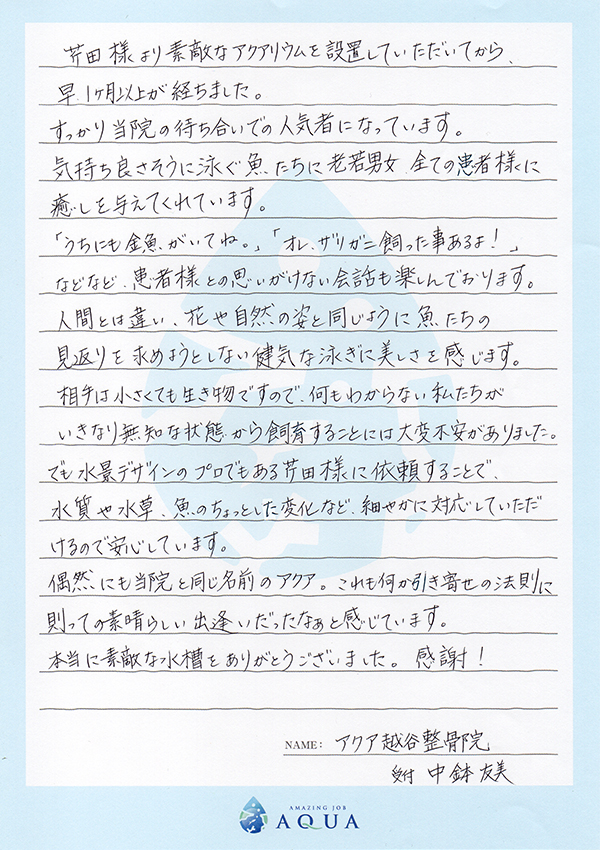 芹田様より素敵なアクアリウムを設置していただいてから、
早1ヶ月以上が経ちました。
すっかり当院の待ち合いでの人気者になっています。
気持ち良さそうに泳ぐ魚たちに老若男女 全ての患者様に
癒しを与えてくれています。
「うちにも金魚がいてね。」「オレ、ザリガニ飼った事あるよ!」
などなど、患者様との思いがけない会話も楽しんでおります。
人間とは違い、花や自然の姿と同じように魚たちの
見返りを求めようとしない健気な泳ぎに美しさを感じます。
相手は小さくても生き物ですので、何もわからない私たちが
いきなり無知な状態から飼育することには大変不安がありました。
でも水景デザインのプロでもある芹田様に依頼することで、
水質や水草、魚のちょっとした変化など、細やかに対応していただ
けるので安心しています。
偶然にも当院と同じ名前のアクア。これも何か引き寄せの法則に
則っての素晴らしい出逢いだったなぁと感じています。
本当に素敵な水槽をありがとうございました。 感謝!
NAME: アクア越谷整骨院
受付 中鉢友美
AMAZING JOB
AQUA